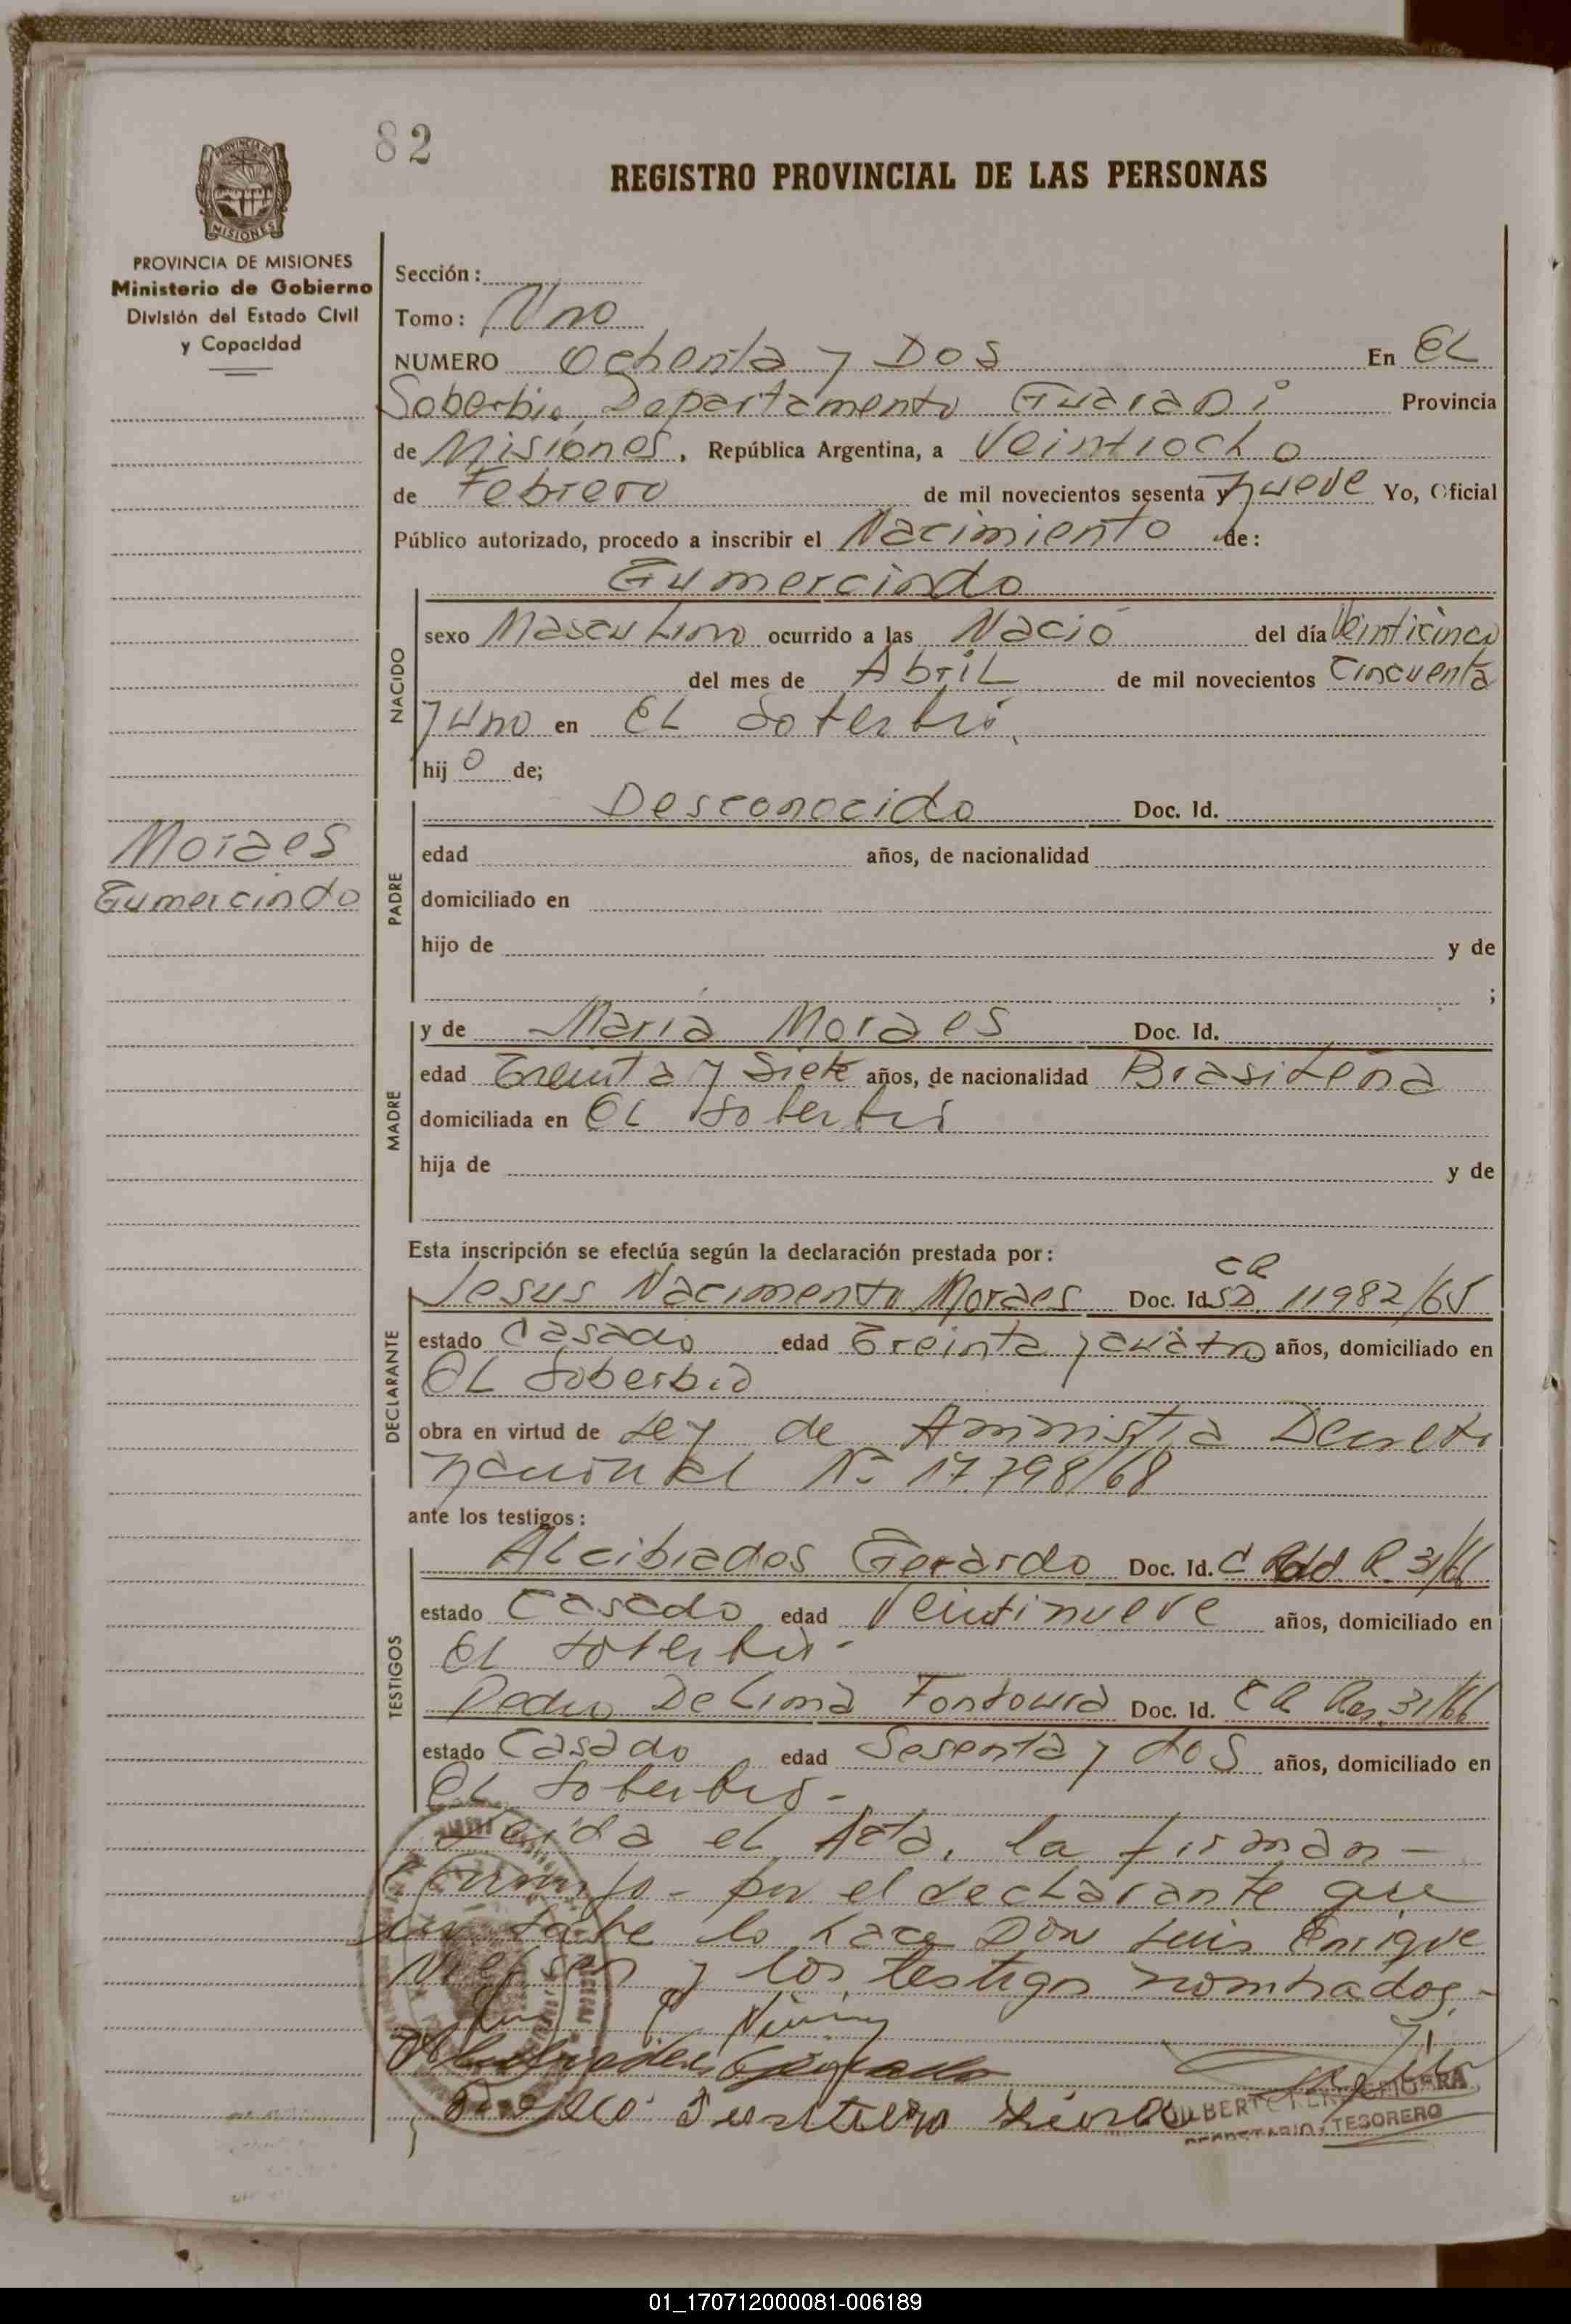 82
REGISTRO PROVINCIAL DE LAS PERSONAS
PROVINCIA DE MISIONES
Ministerio de Gobierno
División del Estado Civil
y Capacidad
Sección:
Tomo: Uno
NUMERO Ochenta y Dos En EL
Soberbio, Departamento Guarani Provincia
de Misiones, República Argentina, a Veintiocho
de Febrero de mil novecientos sesenta y nueve Yo, Oficial
Público autorizado, procedo a inscribir el Nacimiento de:
Gumercindo
NACIDO
sexo Masculino ocurrido a las Nació del día Veinticinco
del mes de Abril de mil novecientos Cincuenta
y uno en EL Soberbio.
hij o de;
Moraes
Gumercindo
PADRE
Desconocido Doc. Id.
edad años, de nacionalidad
domiciliado en
hijo de y de
;
MADRE
y de Maria Moraes Doc. Id.
edad Treinta y Siete años, de nacionalidad Brasileña
domiciliada en EL Soberbio
hija de y de
Esta inscripción se efectúa según la declaración prestada por:
DECLARANTE
Jesus Nacimento Moraes Doc. Id. CR SD. 11982/65
estado Casado edad Treinta y cuatro años, domiciliado en
EL Soberbio
obra en virtud de Ley de Amnistia Decreto
nacional Nº 17.798/68
ante los testigos:
TESTIGOS
Alcibiades Gerardo Doc. Id. C R. 31/66
estado Casado edad Veintinueve años, domiciliado en
EL Soberbio-
Pedro De Lima Fontoura Doc. Id. C R Res. 31/66
estado Casado edad Sesenta y dos años, domiciliado en
EL Soberbio-
Leida el Acta, la firman-
conmigo- por el declarante que
no sabe lo hace Don Luis Enrique
y los testigos nombrados.-
TESORERO
01_170712000081-006189